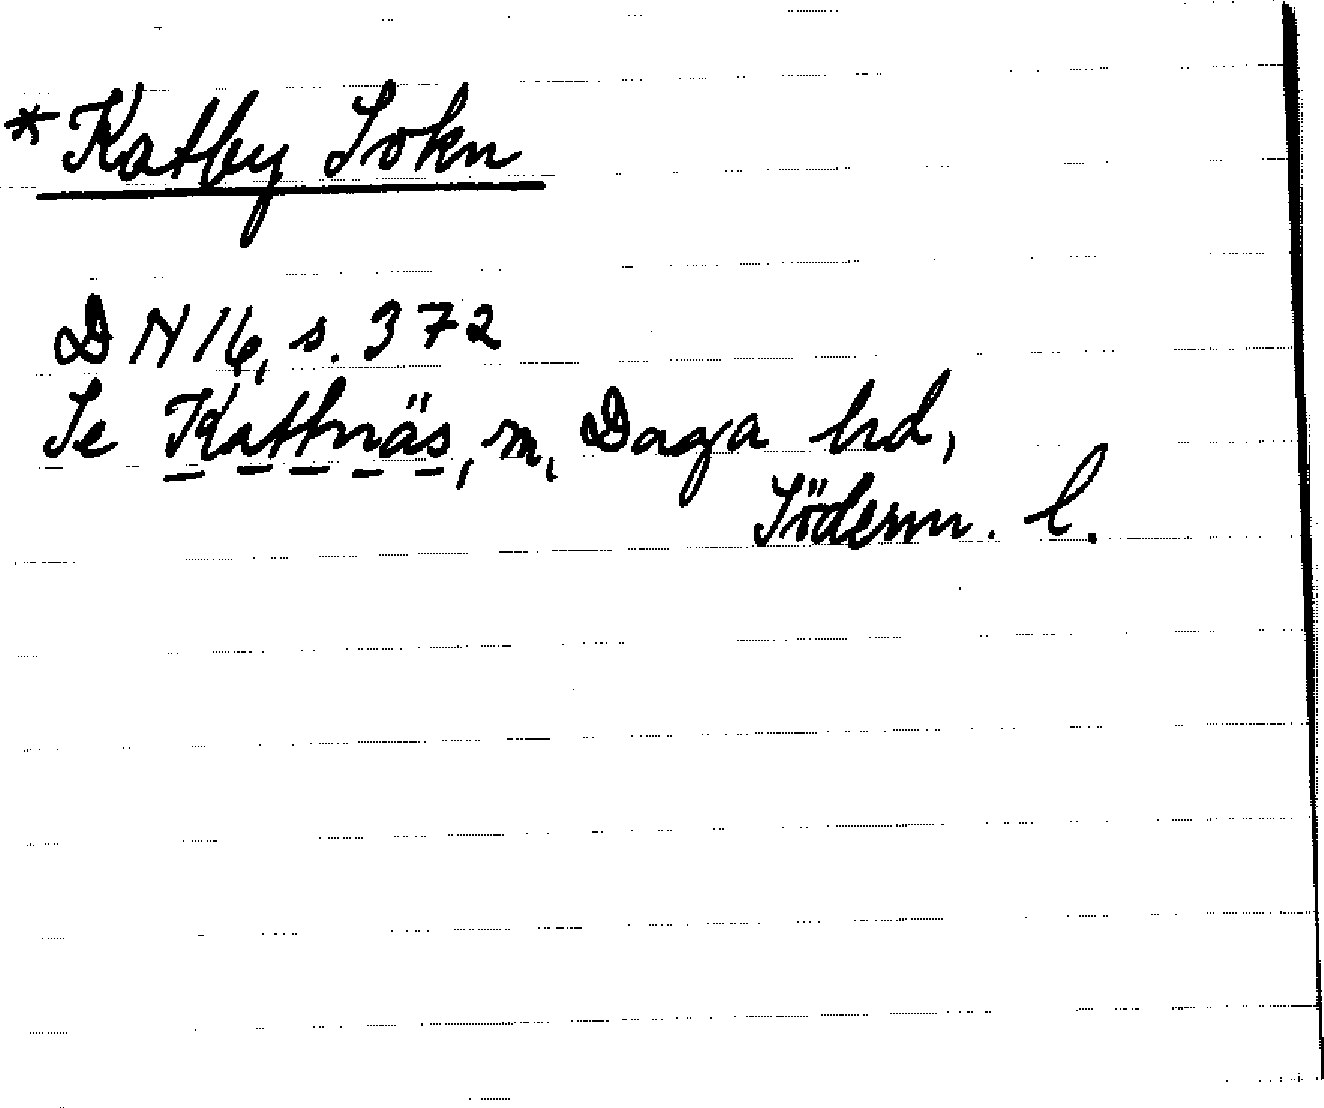 *Katby Sokn
DN 16, s. 372
Se Kattnäs, sn, Daga hd,
Söderm. l.